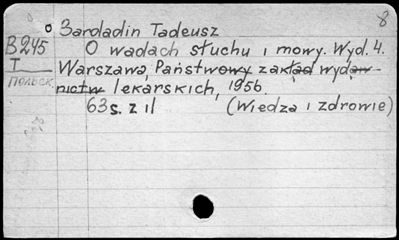 8
Zardadin Tadeusz
B245 O wadach słuchu i mowy. Wyd. 4.
I Warszawa, Państwowy zakład wydaw-
польск. nictw lekarskich, 1956.
63 s. z il (Wiedza i zdrowie)